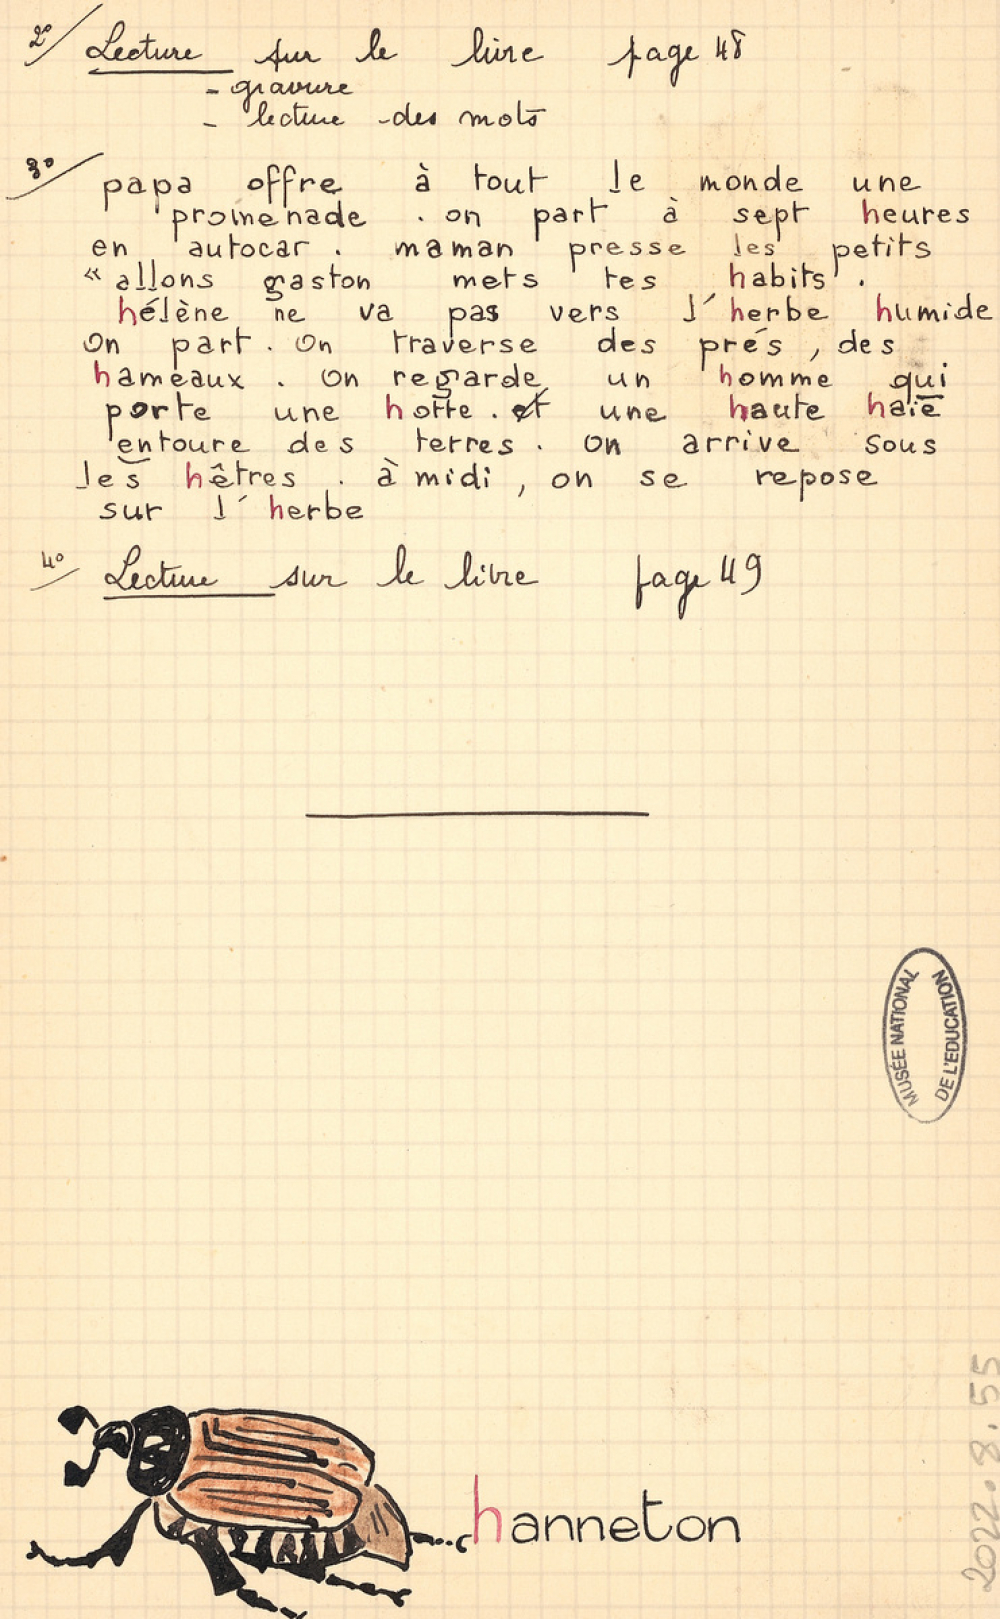 2°/ Lecture sur le livre page 48
- gravure
- lecture des mots
3°/ papa offre à tout le monde une
promenade . on part à sept heures
en autocar . maman presse les petits
“ allons gaston mets tes habits ” .
hélène ne va pas vers l'herbe humide
On part . On traverse des prés , des
hameaux . On regarde un homme qui
porte une hotte . et une haute haie
entoure des terres . On arrive sous
les hêtres . à midi , on se repose
sur l'herbe
4°/ Lecture sur le livre page 49
MUSÉE NATIONAL
DE L'EDUCATION
hanneton
2022.8.55